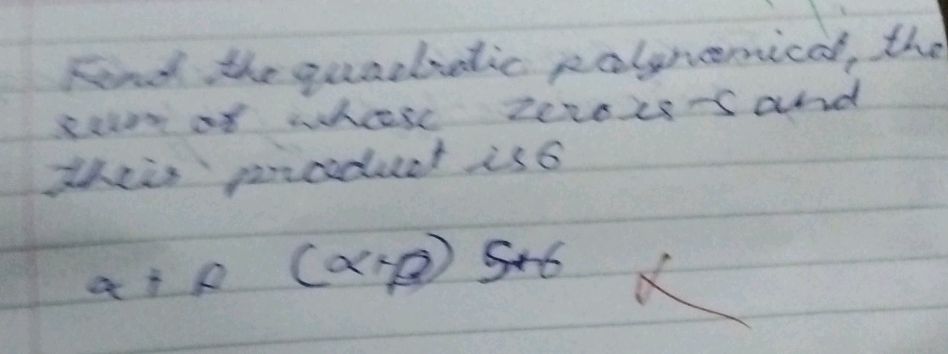 Find the quadratic polynomical, the
sum of whose zero is -5 and
their product is 6
α + β (α+β) 5+6